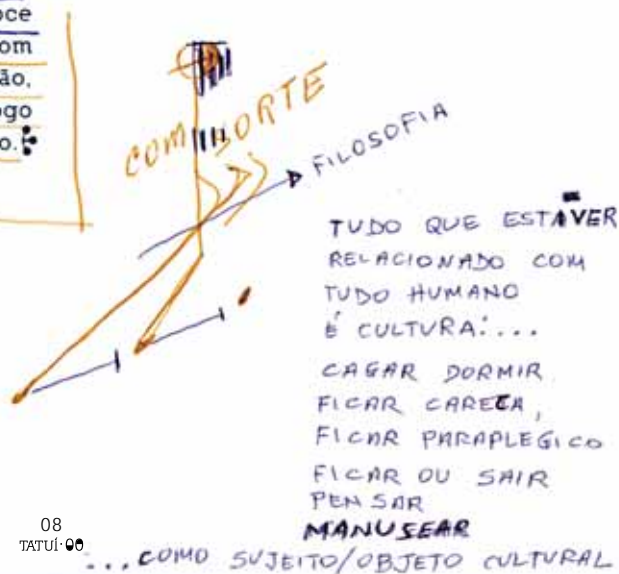 oce
om
ão,
ogo
o.
COM SORTE
FILOSOFIA
TUDO QUE ESTAVER
RELACIONADO COM
TUDO HUMANO
É CULTURA:...
CAGAR DORMIR
FICAR CARECA,
FICAR PARAPLEGICO
FICAR OU SAIR
PENSAR
MANUSEAR
...COMO SUJEITO/OBJETO CULTURAL
08
TATUÍ·00